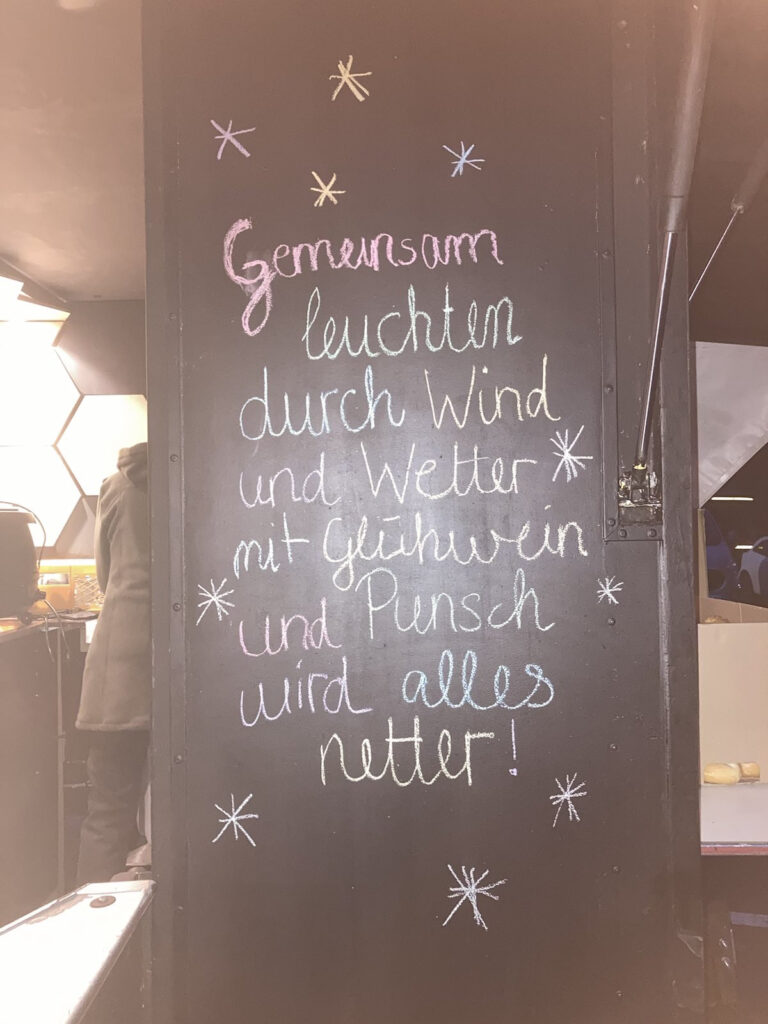 Gemeinsam
leuchten
durch Wind
und Wetter
mit Glühwein
und Punsch
wird alles
netter!